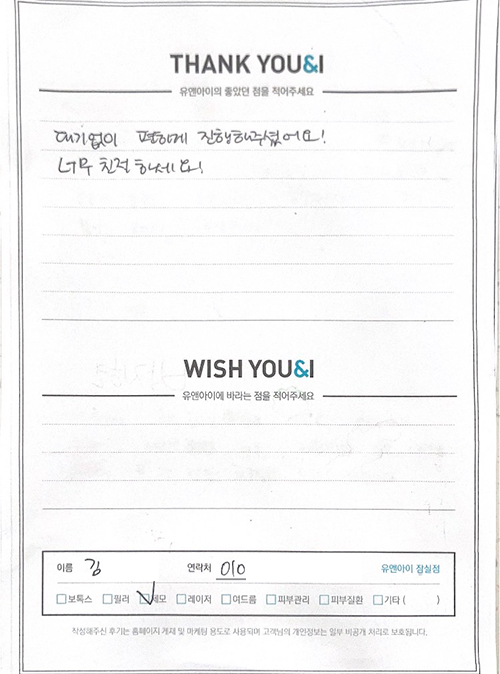 THANK YOU&I
유앤아이의 좋았던 점을 적어주세요
대기없이 편하게 진행해주셨어요!
너무 친절하세요!
WISH YOU&I
유앤아이에 바라는 점을 적어주세요
이름 김 연락처 010 유앤아이 잠실점
보톡스 필러 제모 레이저 여드름 피부관리 피부질환 기타 ( )
작성해주신 후기는 홈페이지 게재 및 마케팅 용도로 사용되며 고객님의 개인정보는 일부 비공개 처리로 보호됩니다.